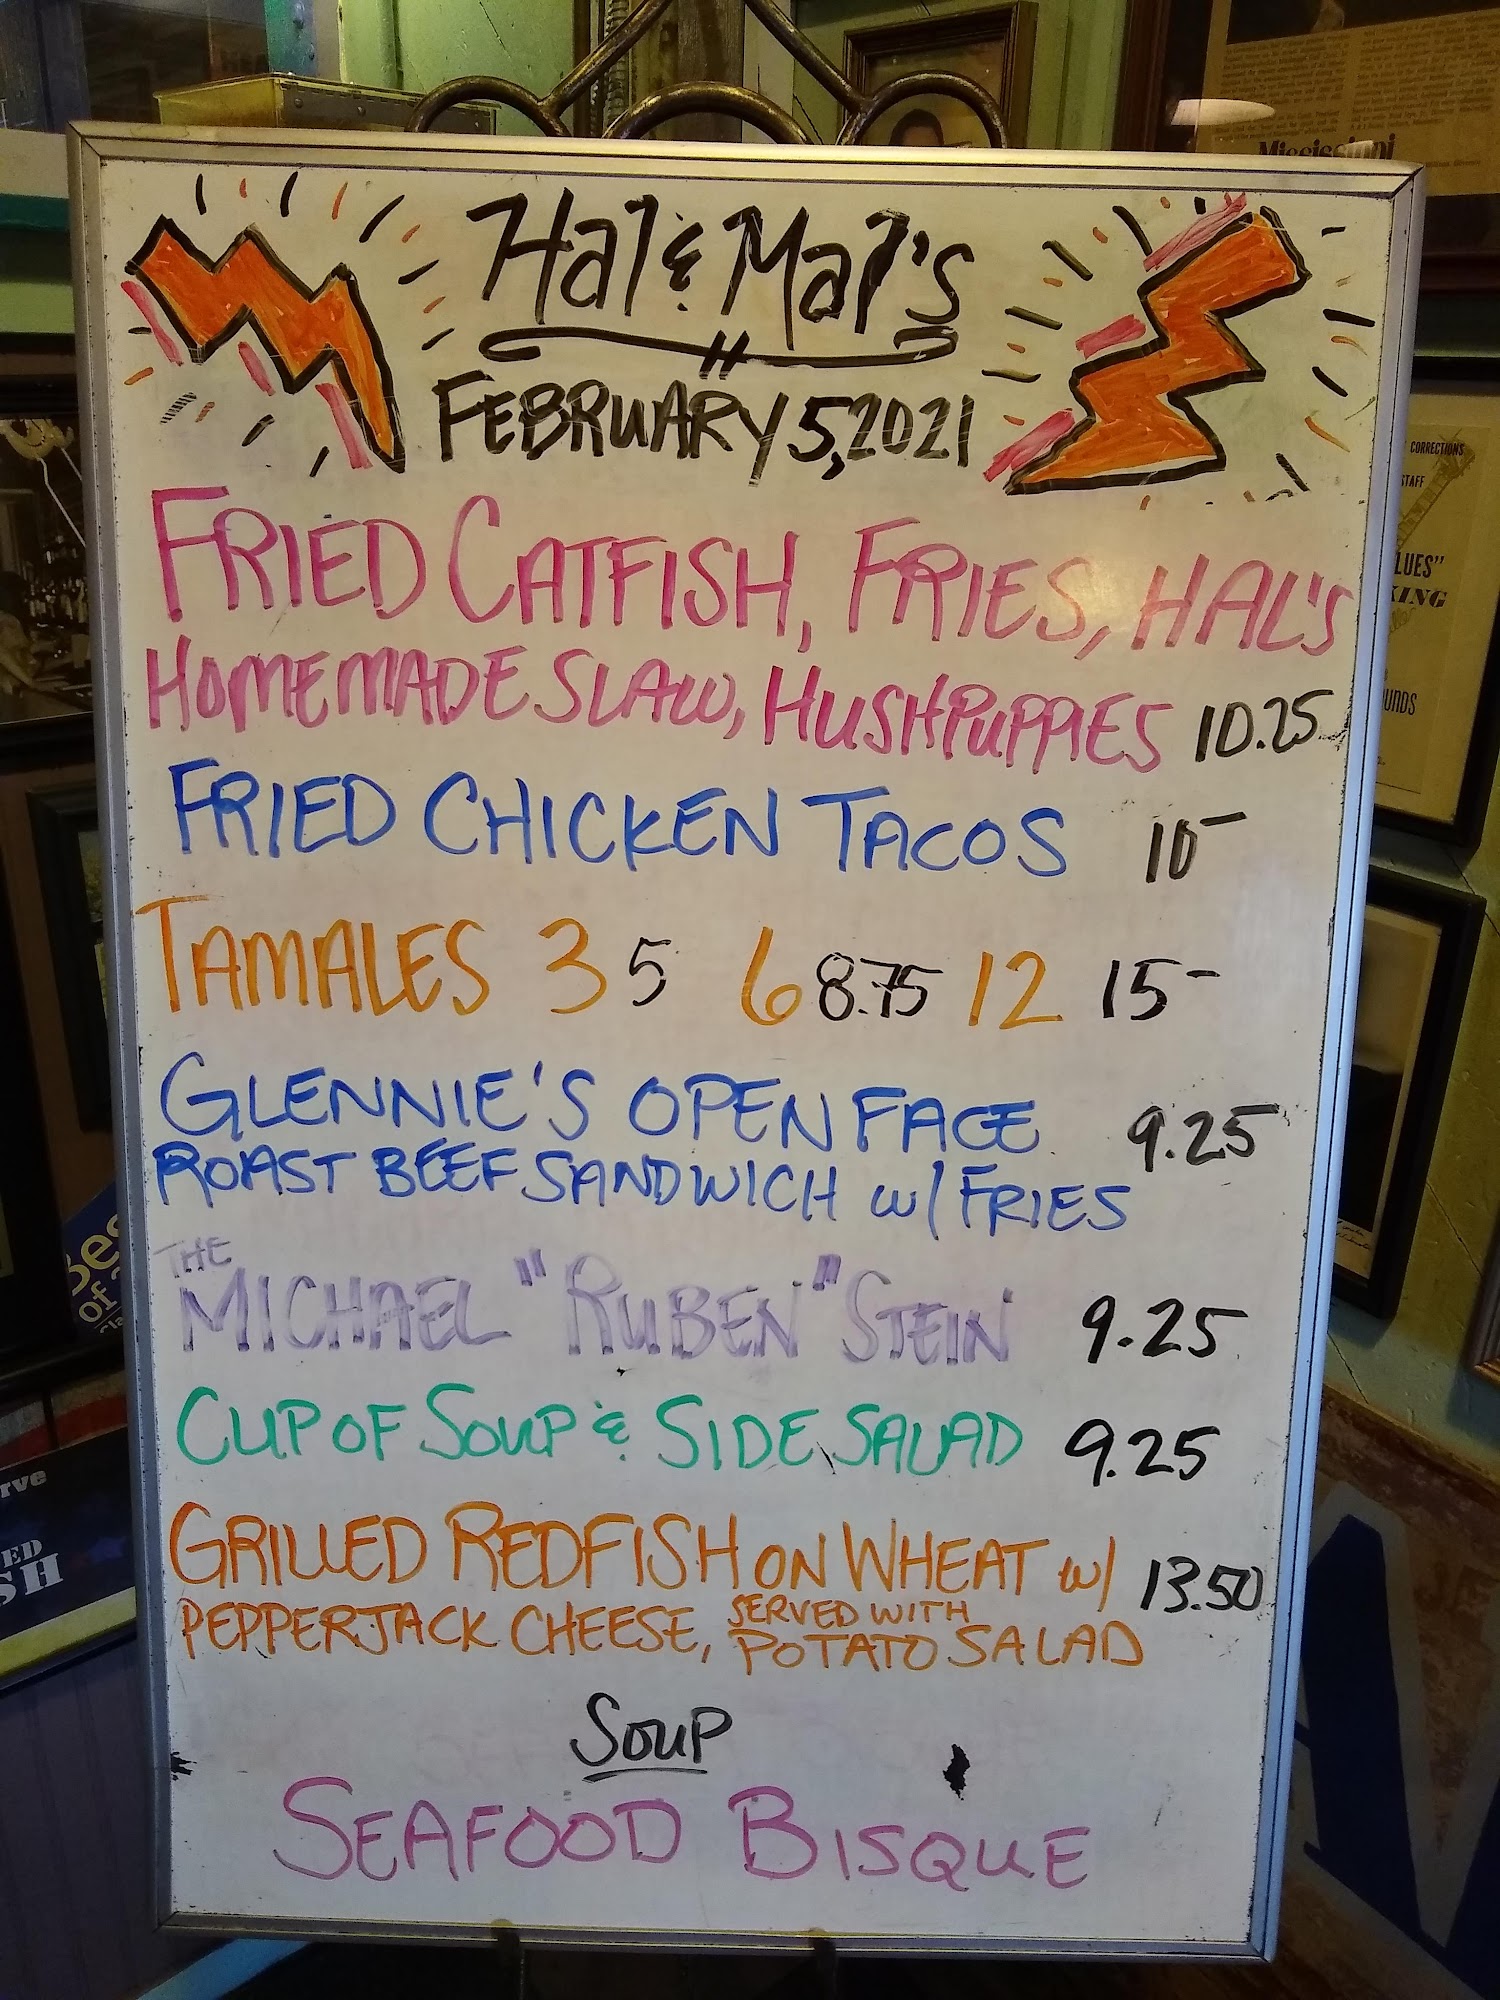 Mississippi
Hal & Mal's
FEBRUARY 5, 2021
FRIED CATFISH, FRIES, HAL'S
HOMEMADE SLAW, HUSHPUPPIES 10.25
FRIED CHICKEN TACOS 10-
TAMALES 3 5 6 8.75 12 15-
GLENNIE'S OPEN FACE 9.25
ROAST BEEF SANDWICH w/ FRIES
THE
MICHAEL "RUBEN" STEIN 9.25
CUP OF SOUP & SIDE SALAD 9.25
GRILLED REDFISH ON WHEAT w/ 13.50
PEPPERJACK CHEESE, SERVED WITH
POTATO SALAD
SOUP
SEAFOOD BISQUE
CORRECTIONS
STAFF
LUES"
KING
UNDS
of
rve
ED
SH